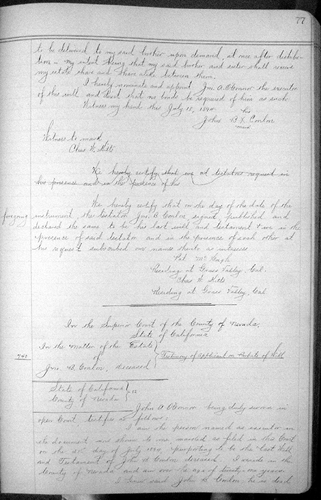 77
to be delivered to my said brother upon demand, at once after distribu-
tion - my intent being that my said brother and sister shall
my estate share and share alike between them.
I hereby nominate and appoint Jno A. O'Connor the executor
of this will and that no bonds be required of him as such
Witness my hand this July 15, 1890
his
John B. X Conlon
mark
Witness to mark
Chas. W. Kitts
We hereby certify that said testator signed in
his presence and in the presence of his
We hereby certify that on the day of the date of the
foregoing instrument, the testator Jno B. Conlon signed published and
declared the same to be his last will and testament, & we in the
presence of said testator and in the presence of each other at
his request subscribed our names thereto as witnesses
Pat. McHugh
Residing at Grass Valley, Cal.
Chas. W. Kitts
Residing at Grass Valley, Cal.
In the Superior Court of the County of Nevada,
State of California
In the Matter of the Estate
of
Jno. B. Conlon, deceased
Testimony of Applicant on Probate of Will
State of California
County of Nevada
ss
John A O'Connor being duly sworn in
open Court testifies as follows:
I am the person named as executor in
the document now shown to me marked as filed in this Court
on the day of July 1890 purporting to be the last Will
and Testament of John B. Conlon deceased. I reside in the
County of Nevada and am over the age of twenty one years
I knew said John B. Conlon, he is dead